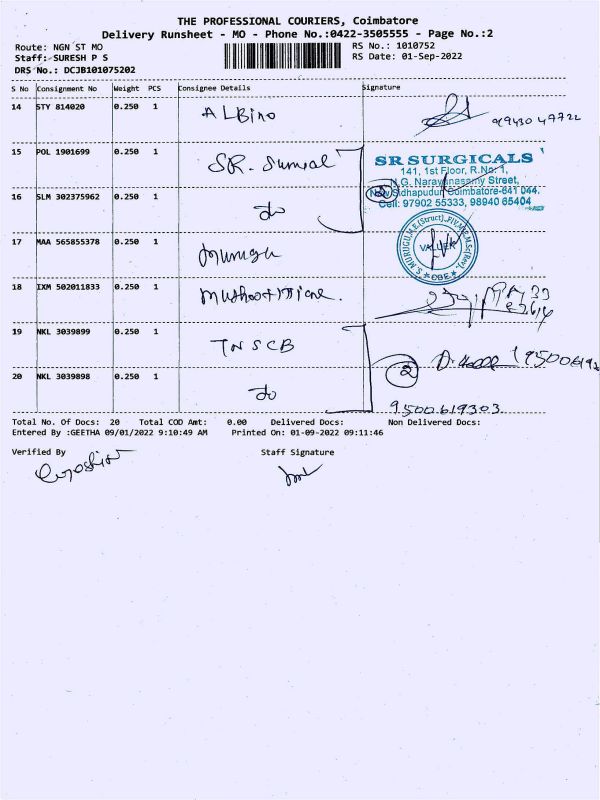 THE PROFESSIONAL COURIERS, Coimbatore
Delivery Runsheet - MO - Phone No.:0422-3505555 - Page No.:2
Route: NGN ST MO
RS No.: 1010752
Staff: SURESH P S
RS Date: 01-Sep-2022
DRS No.: DCJB101075202
S No Consignment No Weight PCS Consignee Details Signature
14 STY 814020 0.250 1 ALBino
15 POL 1901699 0.250 1 SR. Surgical
SR SURGICALS
141, 1st Floor, R.No: 1,
N.G. Narayanasamy Street,
New Sidhapudur, Coimbatore-641 044.
Cell: 97902 55333, 98940 65404
16 SLM 302375962 0.250 1 do
2
17 MAA 565855378 0.250 1 murugu
VALUER
CBE
18 IXM 502011833 0.250 1
19 NKL 3039899 0.250 1 TNSCB
2
20 NKL 3039898 0.250 1 do
9500619303
Total No. Of Docs: 20 Total COD Amt: 0.00 Delivered Docs: Non Delivered Docs:
Entered By :GEETHA 09/01/2022 9:10:49 AM Printed On: 01-09-2022 09:11:46
Verified By Staff Signature